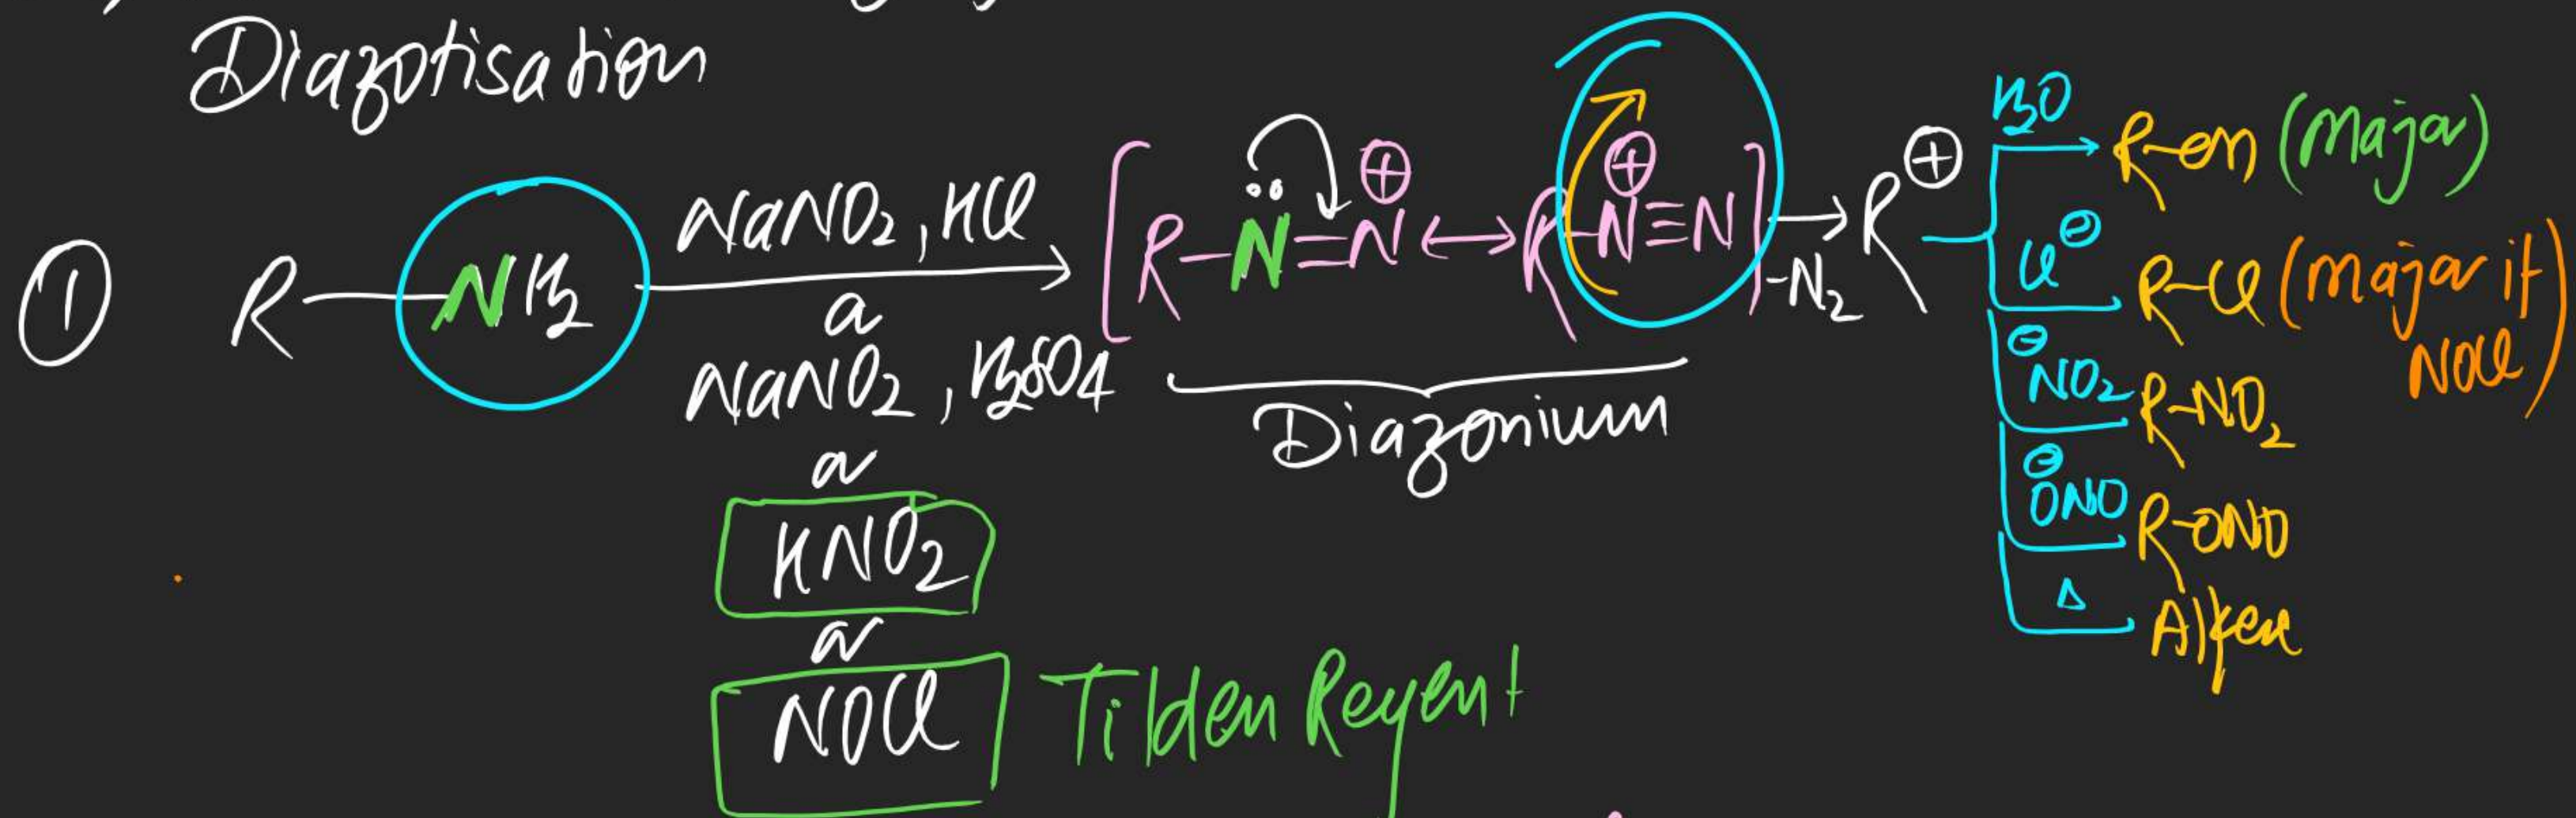 Diazotisation
① R-NH2 NaNO2, HCl [R-N̈=N⊕ ↔ R-N⊕≡N] -N2 → R⊕
or
NaNO2, H2SO4
or
HNO2
or
NOCl Tilden Reagent
Diazonium
H2O R-OH (Major)
Cl⊖ R-Cl (Major if NOCl)
⊖NO2 R-NO2
⊖ONO R-ONO
Δ Alkene